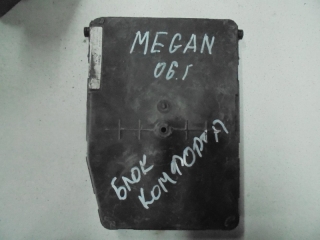 MEGAN
06.г
БЛОК
КОМФОРТА